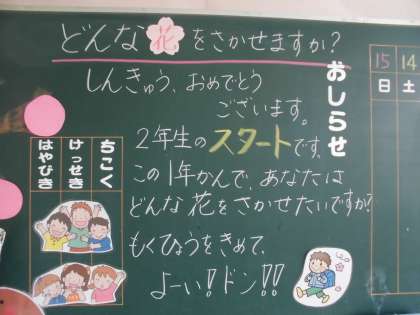 どんな花をさかせますか?
しんきゅう、おめでとう
ございます。
2年生のスタートです。
この1年かんで、あなたは
どんな花をさかせたいですか?
もくひょうをきめて、
よーい!ドン!!
おしらせ
15 14
日 土
ちこく
けっせき
はやびき